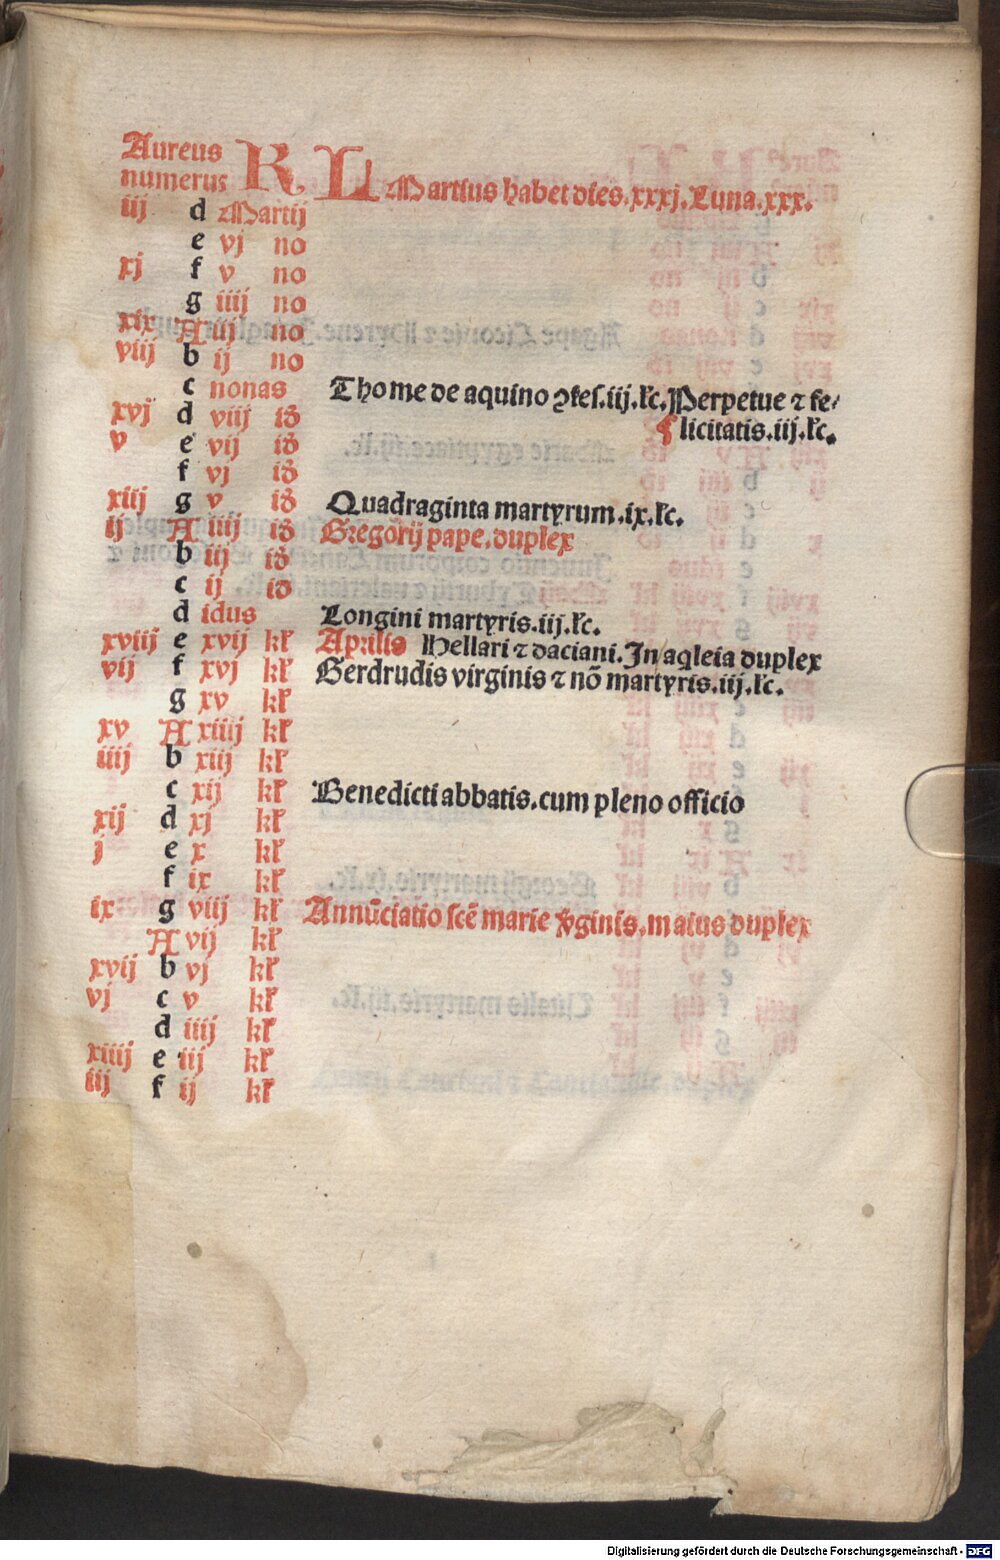 Aureus numerus KL Martius habet dies.xxxj.Luna.xxx.
iij d Martij
e vj no
xj f v no
g iiij no
xix A iij no
viij b ij no
c nonas Thome de aquino ꝯfes.iij.lc̄.Perpetue ⁊ fe/
xvj d viij id̄ ¶ licitatis.iij.lc̄.
v e vij id̄
f vj id̄
xiij g v id̄ Quadraginta martyrum.ix.lc̄.
ij A iiij id̄ Gregorij pape.duplex
b iij id̄
c ij id̄
d idus Longini martyris.iij.lc̄.
xviij e xvij kl̄ Aprilis Hellari ⁊ daciani.In aqleia duplex
vij f xvj kl̄ Gerdrudis virginis ⁊ nō martyris.iij.lc̄.
g xv kl̄
xv A xiiij kl̄
iiij b xiij kl̄
c xij kl̄ Benedicti abbatis.cum pleno officio
xij d xj kl̄
j e x kl̄
f ix kl̄
ix g viij kl̄ Annūciatio scē marie v̄ginis.maius duplex
A vij kl̄
xvij b vj kl̄
vj c v kl̄
d iiij kl̄
xiiij e iij kl̄
iij f ij kl̄
Digitalisierung gefördert durch die Deutsche Forschungsgemeinschaft - DFG